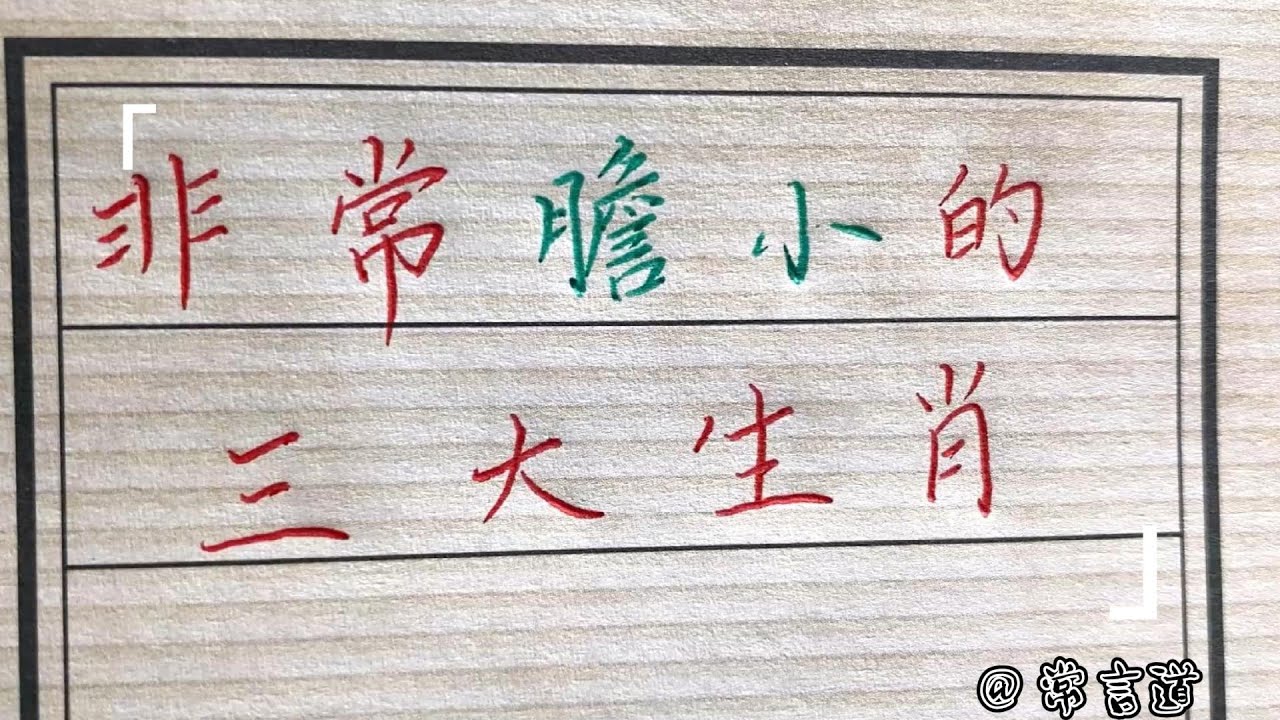 「非常膽小的
三大生肖」
@常言道